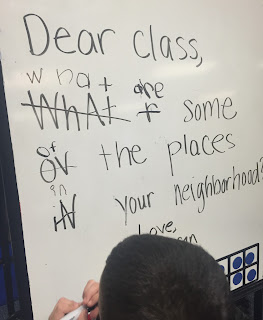 Dear class,
what are
WhAt r some
of
OV the places
in
iN your neighborhood?
Love,